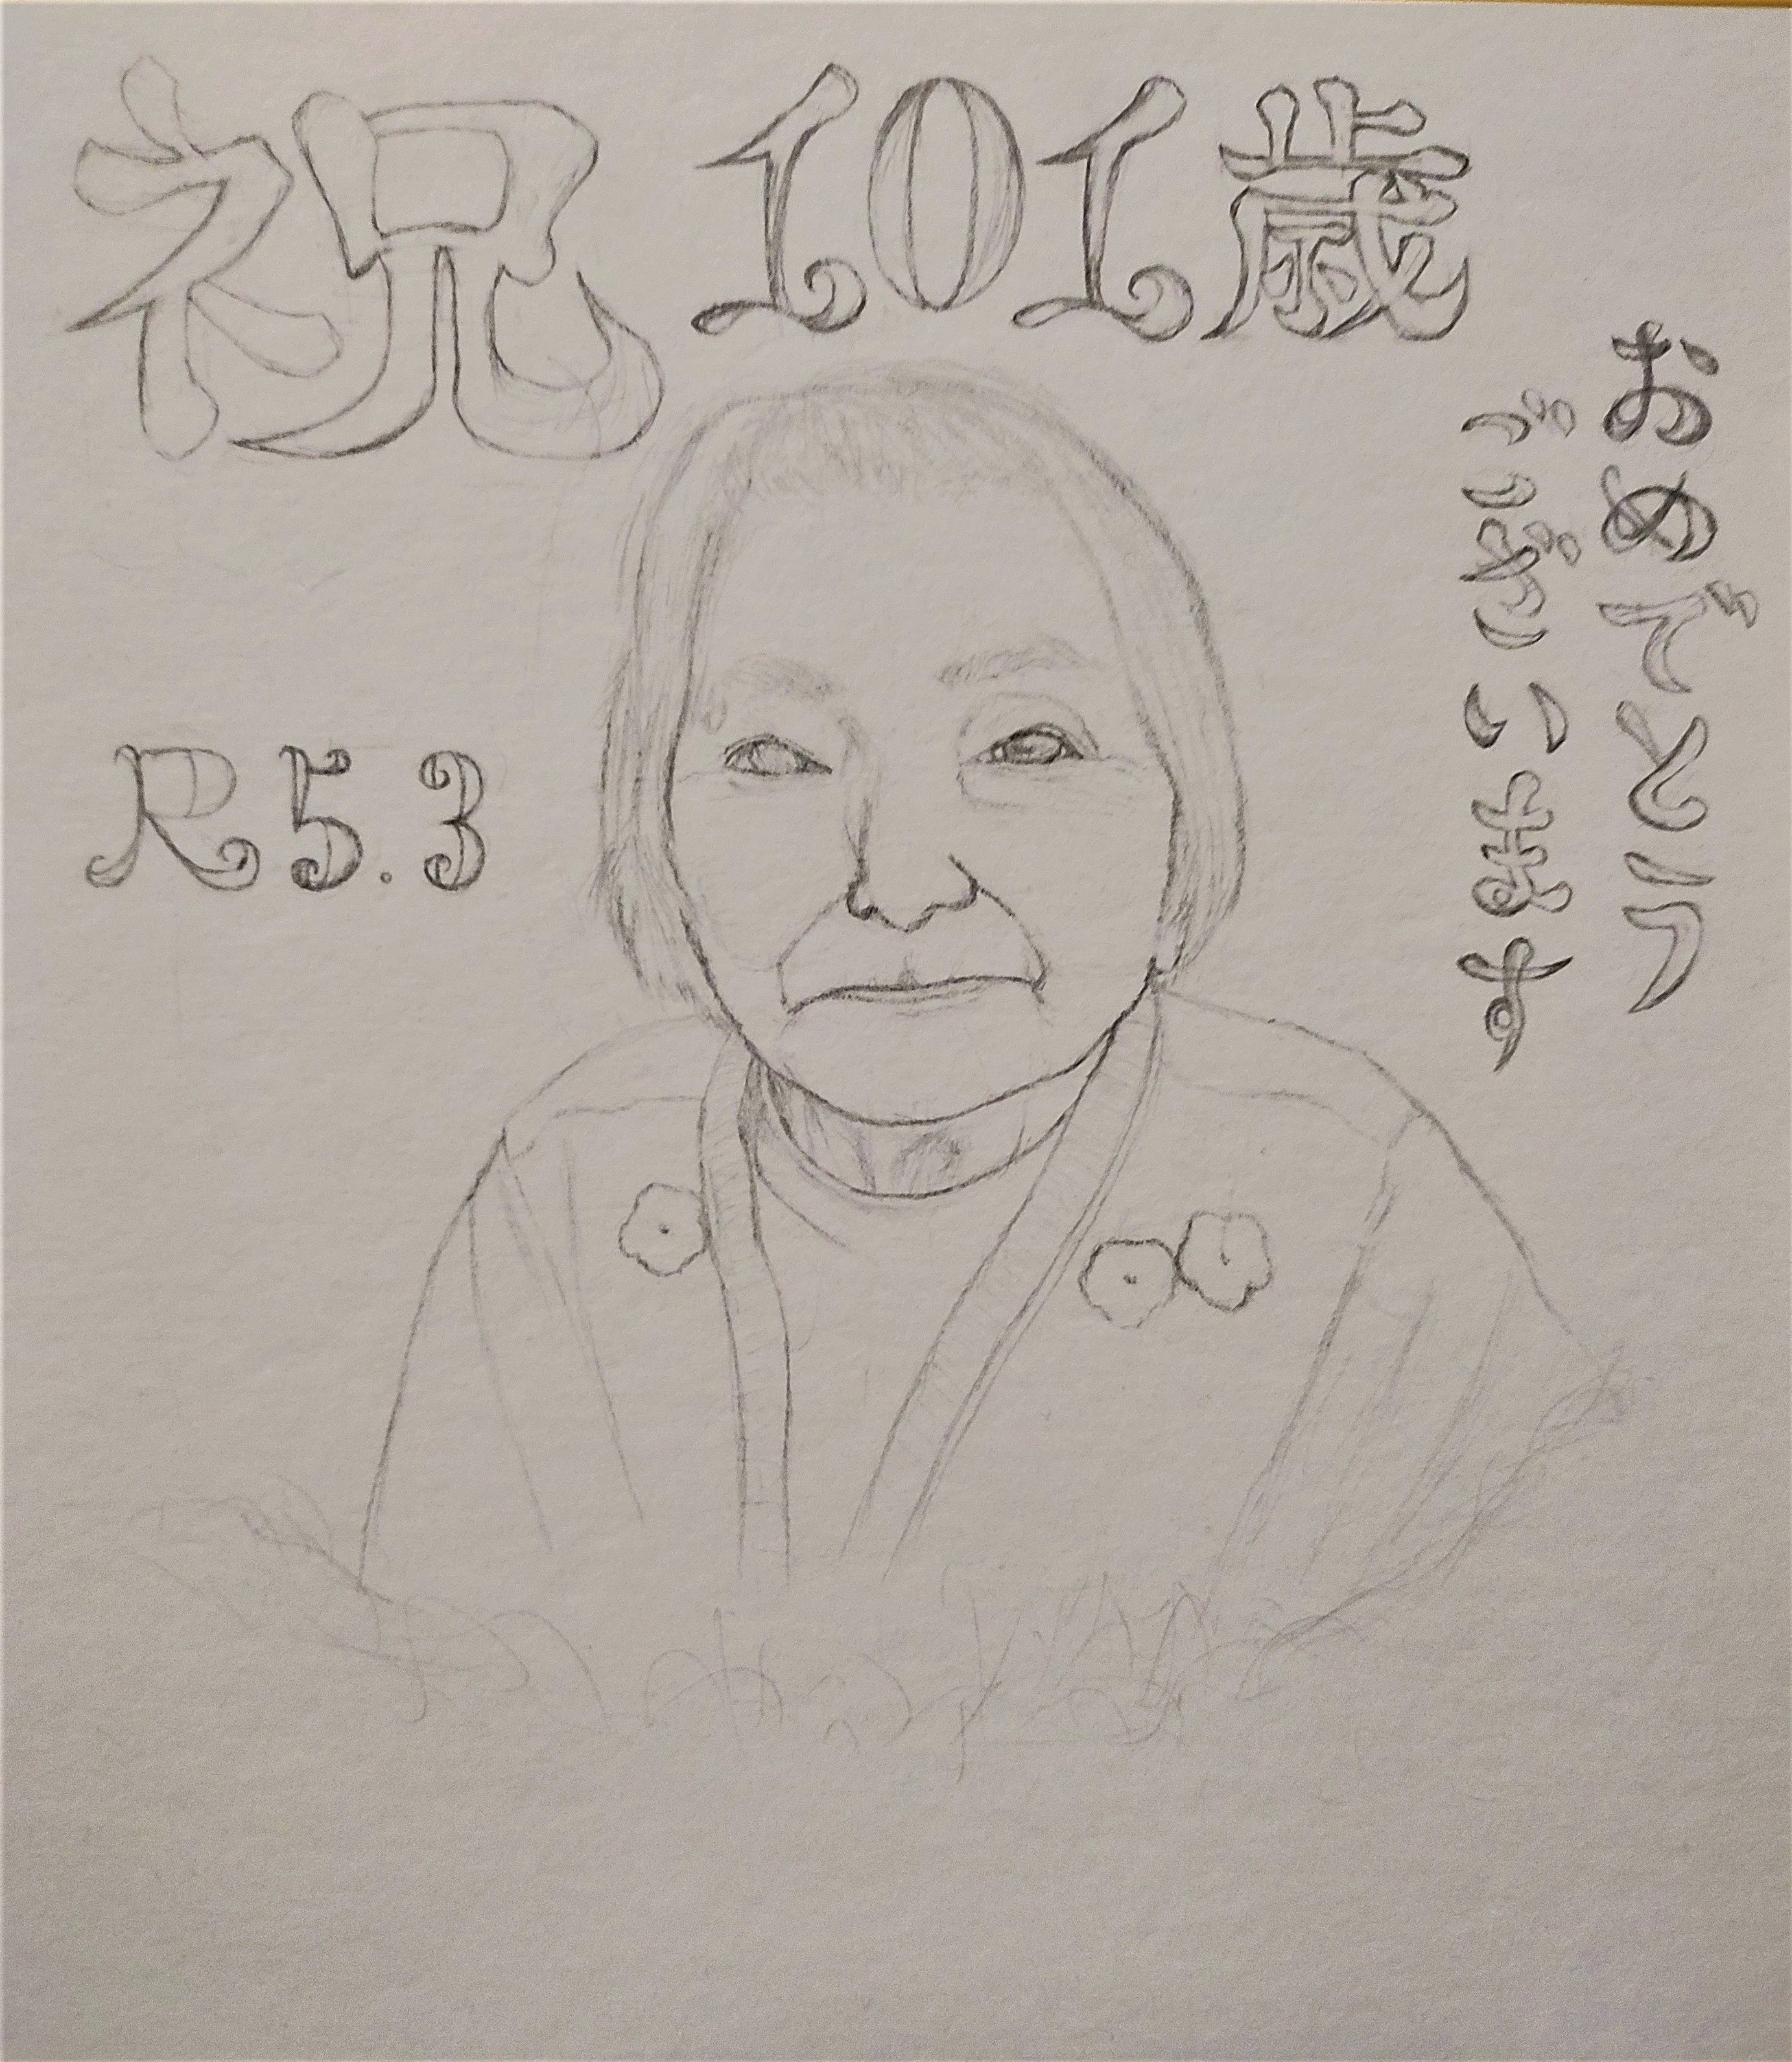 祝 101歳
おめでとう
ございます
R5.3